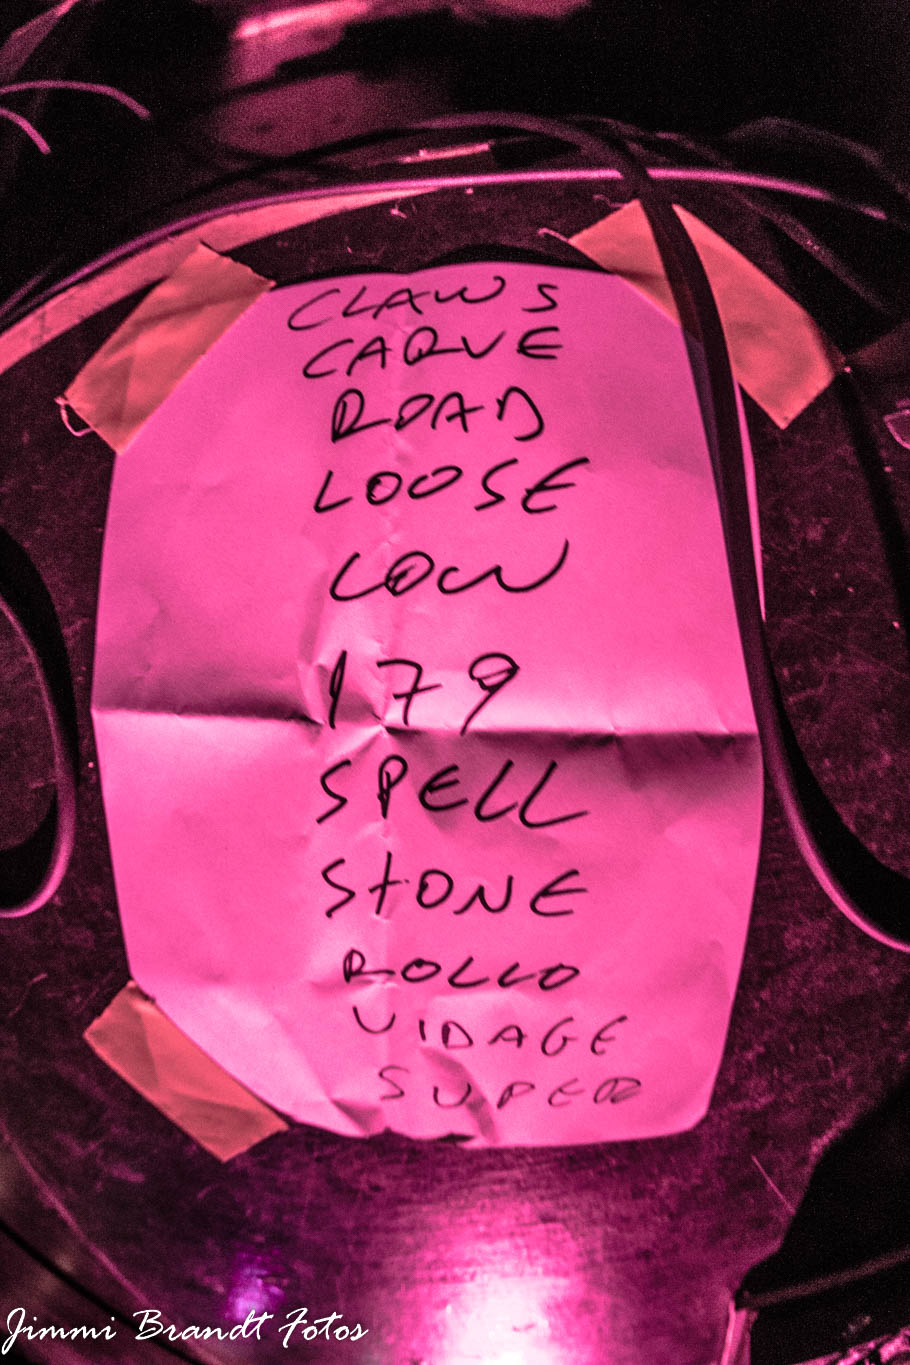 CLAWS
CARVE
ROAD
LOOSE
LOW
179
SPELL
STONE
ROLLO
VIDAGE
SUPER
Jimmi Brandt Fotos